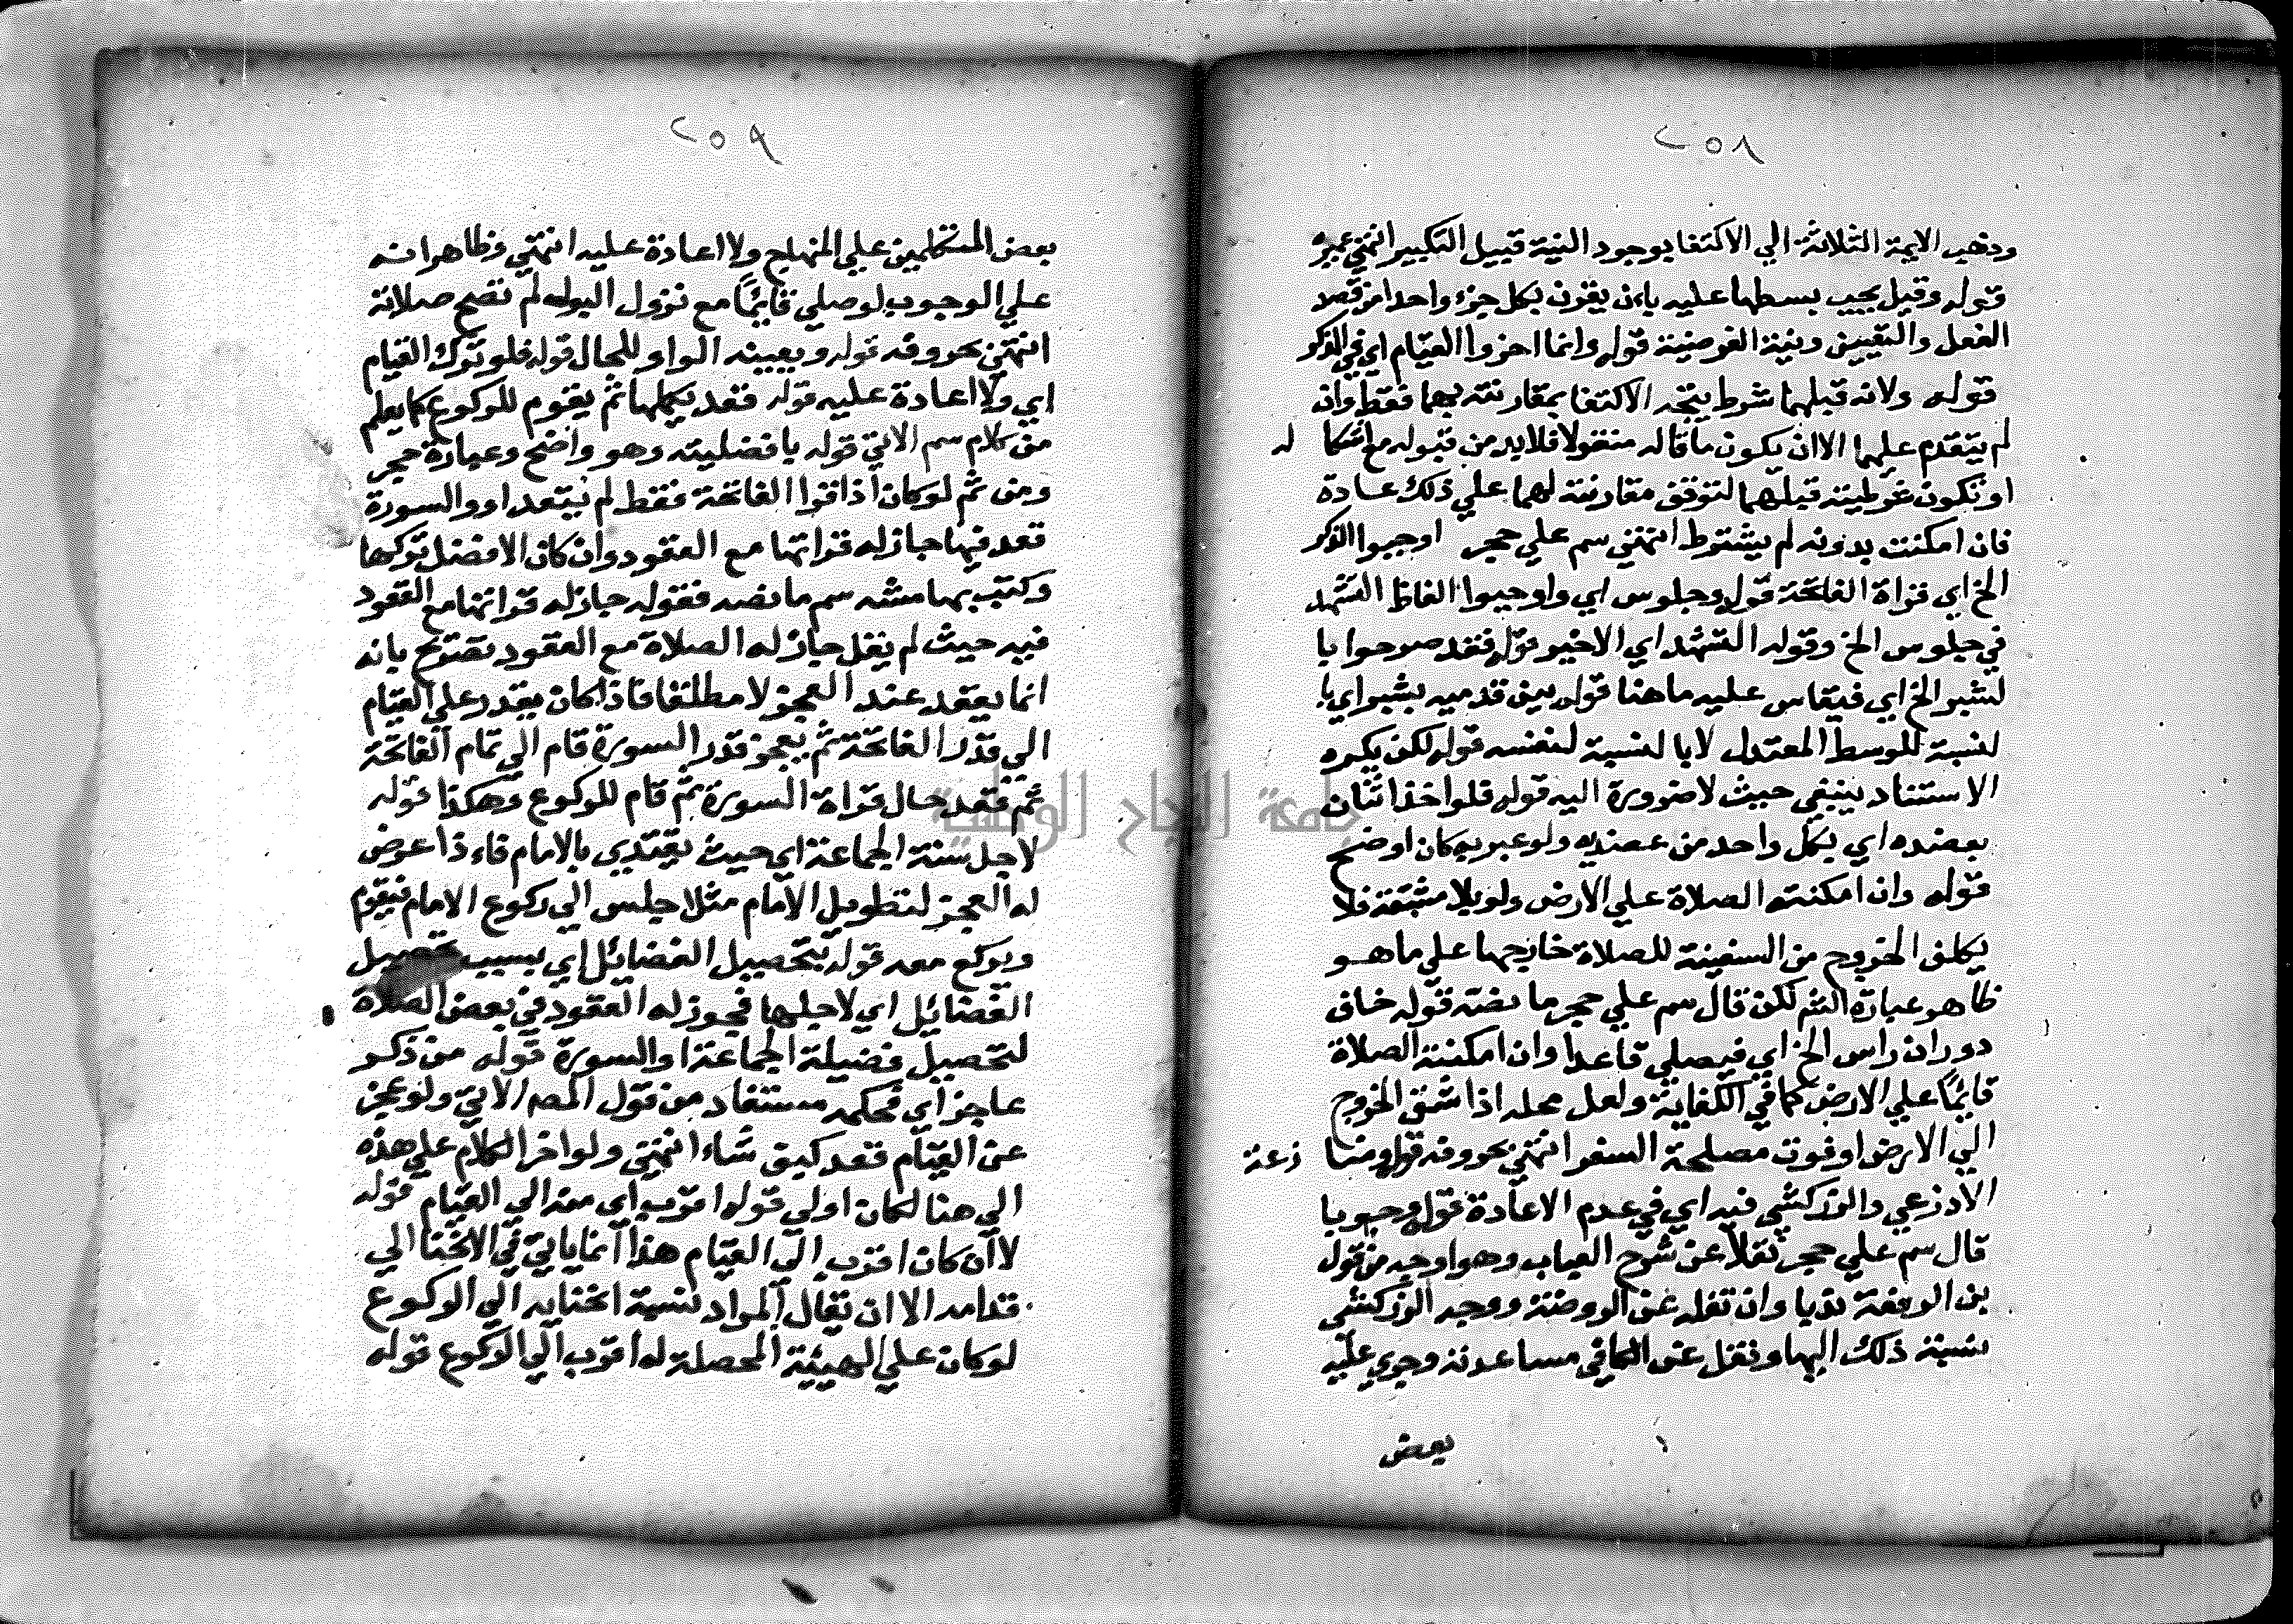 ٢٥٨
وذهب الايمة الثلاثة الي الاكتفا بوجود النية قبيل التكبير انتهي عميره
قوله وقيل يجب بسطها عليه بان يقرن بكل جزء واحدا من قصد
الفعل والتعيين ونية الفرضية قوله وانما اخروا القيام اي في الذكر
قوله ولانه قبلهما شرط يتجه الاكتفا بمقارنته بهما فقط وان
لم يتقدم عليهما الا ان يكون ما قاله منقولا فلابد من قبوله مع اشكا له
او تكون شرطيته قبلهما لتوقف مقارنته لهما علي ذلك عادة
فان امكنت بدونه لم يشترط انتهي سم علي حجر اوجبوا الذكر
الخ اي قراة الفاتحة قوله وجلوس اي واوجبوا الفاظ التشهد
في جلوس الخ وقوله التشهد اي الاخير قوله فقد صرحوا با
لشبر الخ اي فيقاس عليه ما هنا قوله بين قدميه بشبر اي با
لنسبة للوسط المعتدل لا بالنسبة لنفسه قوله لكن يكره
الاستناد ينبغي حيث لا ضرورة اليه قوله فلو اخذ اثنان
بعضده اي بكل واحد من عضديه ولو عبر به كان اوضح
قوله وان امكنته الصلاة علي الارض ولو بلا مشقة فلا
يكلف الخروج من السفينة للصلاة خارجها علي ما هو
ظاهر عبارة الشم لكن قال سم علي حجر ما نصه قوله خاف
دوران راس الخ اي فيصلي قاعدا وان امكنته الصلاة
قائما علي الارض كما في الكفاية ولعل محله اذا شق الخروج
الي الارض او فوت مصلحة السفر انتهي بحروفه قوله ومنا زعة
الاذرعي والزركشي فيه اي في عدم الاعادة قوله وجوبا
قال سم علي حجر نقلا عن شرح العباب وهو اوجه من قول
بن الرفعة ندبا وان نقله عن الروضة ووجه الزركشي
نسبة ذلك اليها ونقل عن الكافي مساعدته وجري عليه
بعض
٢٥٩
بعض المتكلمين علي المنهاج ولا اعادة عليه انتهي وظاهر انه
علي الوجوب لو صلي قائما مع نزول البول لم تصح صلاته
انتهي بحروفه قوله ويعيينه الواو للحال قوله فلو ترك القيام
اي ولا اعادة عليه قوله فعد يكملها ثم يقوم للركوع كما يعلم
من كلام سم الاتي قوله بافضليته وهو واضح وعبارة حجر
ومن ثم لو كان اذا قرا الفاتحة فقط لم يقعد او والسورة
قعد فيها جاز له قراتها مع القعود وان كان الافضل تركها
وكتب بهامشه سم ما نصه فقوله جاز له قراتها مع القعود
فيه حيث لم يقل جاز له الصلاة مع القعود تصريح بانه
انما يقعد عند العجز لا مطلقا فاذا كان يقدر علي القيام
الي قدر الفاتحة ثم يعجز قدر السورة قام الي تمام الفاتحة
ثم قعد حال قراة السورة ثم قام للركوع وهكذا قوله
لاجل سنة الجماعة اي حيث يقتدي بالامام فاء ذا عرض
له العجز لتطويل الامام مثلا جلس الي ركوع الامام فيقوم
ويركع معه قوله بتحصيل الفضائل اي بسبب تحصيل
الفضائل اي لاجلها فيجوز له القعود في بعض الصلاة
لتحصيل فضيلة الجماعة او السورة قوله من ذكر
عاجز اي فحكمه مستفاد من قول المصم الاتي ولو عجز
عن القيام قعد كيف شاء انتهي ولو اخر الكلام علي هذه
الي هنا لكان اولي قوله اقرب اي منه الي القيام قوله
لا ان كان اقرب الي القيام هذا انما ياتي في الانحنا الي
قدامه الا ان يقال المراد نسبة انحنايه الي الركوع
لو كان علي الهيئة المحصلة له اقرب الي الركوع قوله
جامعة النجاح الوطنية